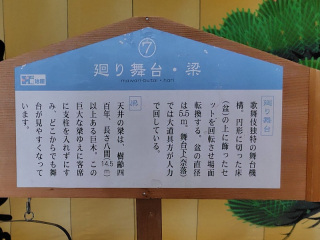 ⑦
廻り舞台・梁
mawaributai・hari
廻り舞台
歌舞伎独特の舞台機
構。円形に切った床
(盆)の上に飾ったセ
ットを回転させ場面
転換する。盆の直径
は5.5m。舞台下(奈落)
では大道具方が人力
で回している。
梁
天井の梁は、樹齢四
百年、長さ八間(14.5m)
以上ある巨木。この
巨大な梁ゆえに客席
に支柱を入れずにす
み、どこからでも舞
台が見やすくなって
います。